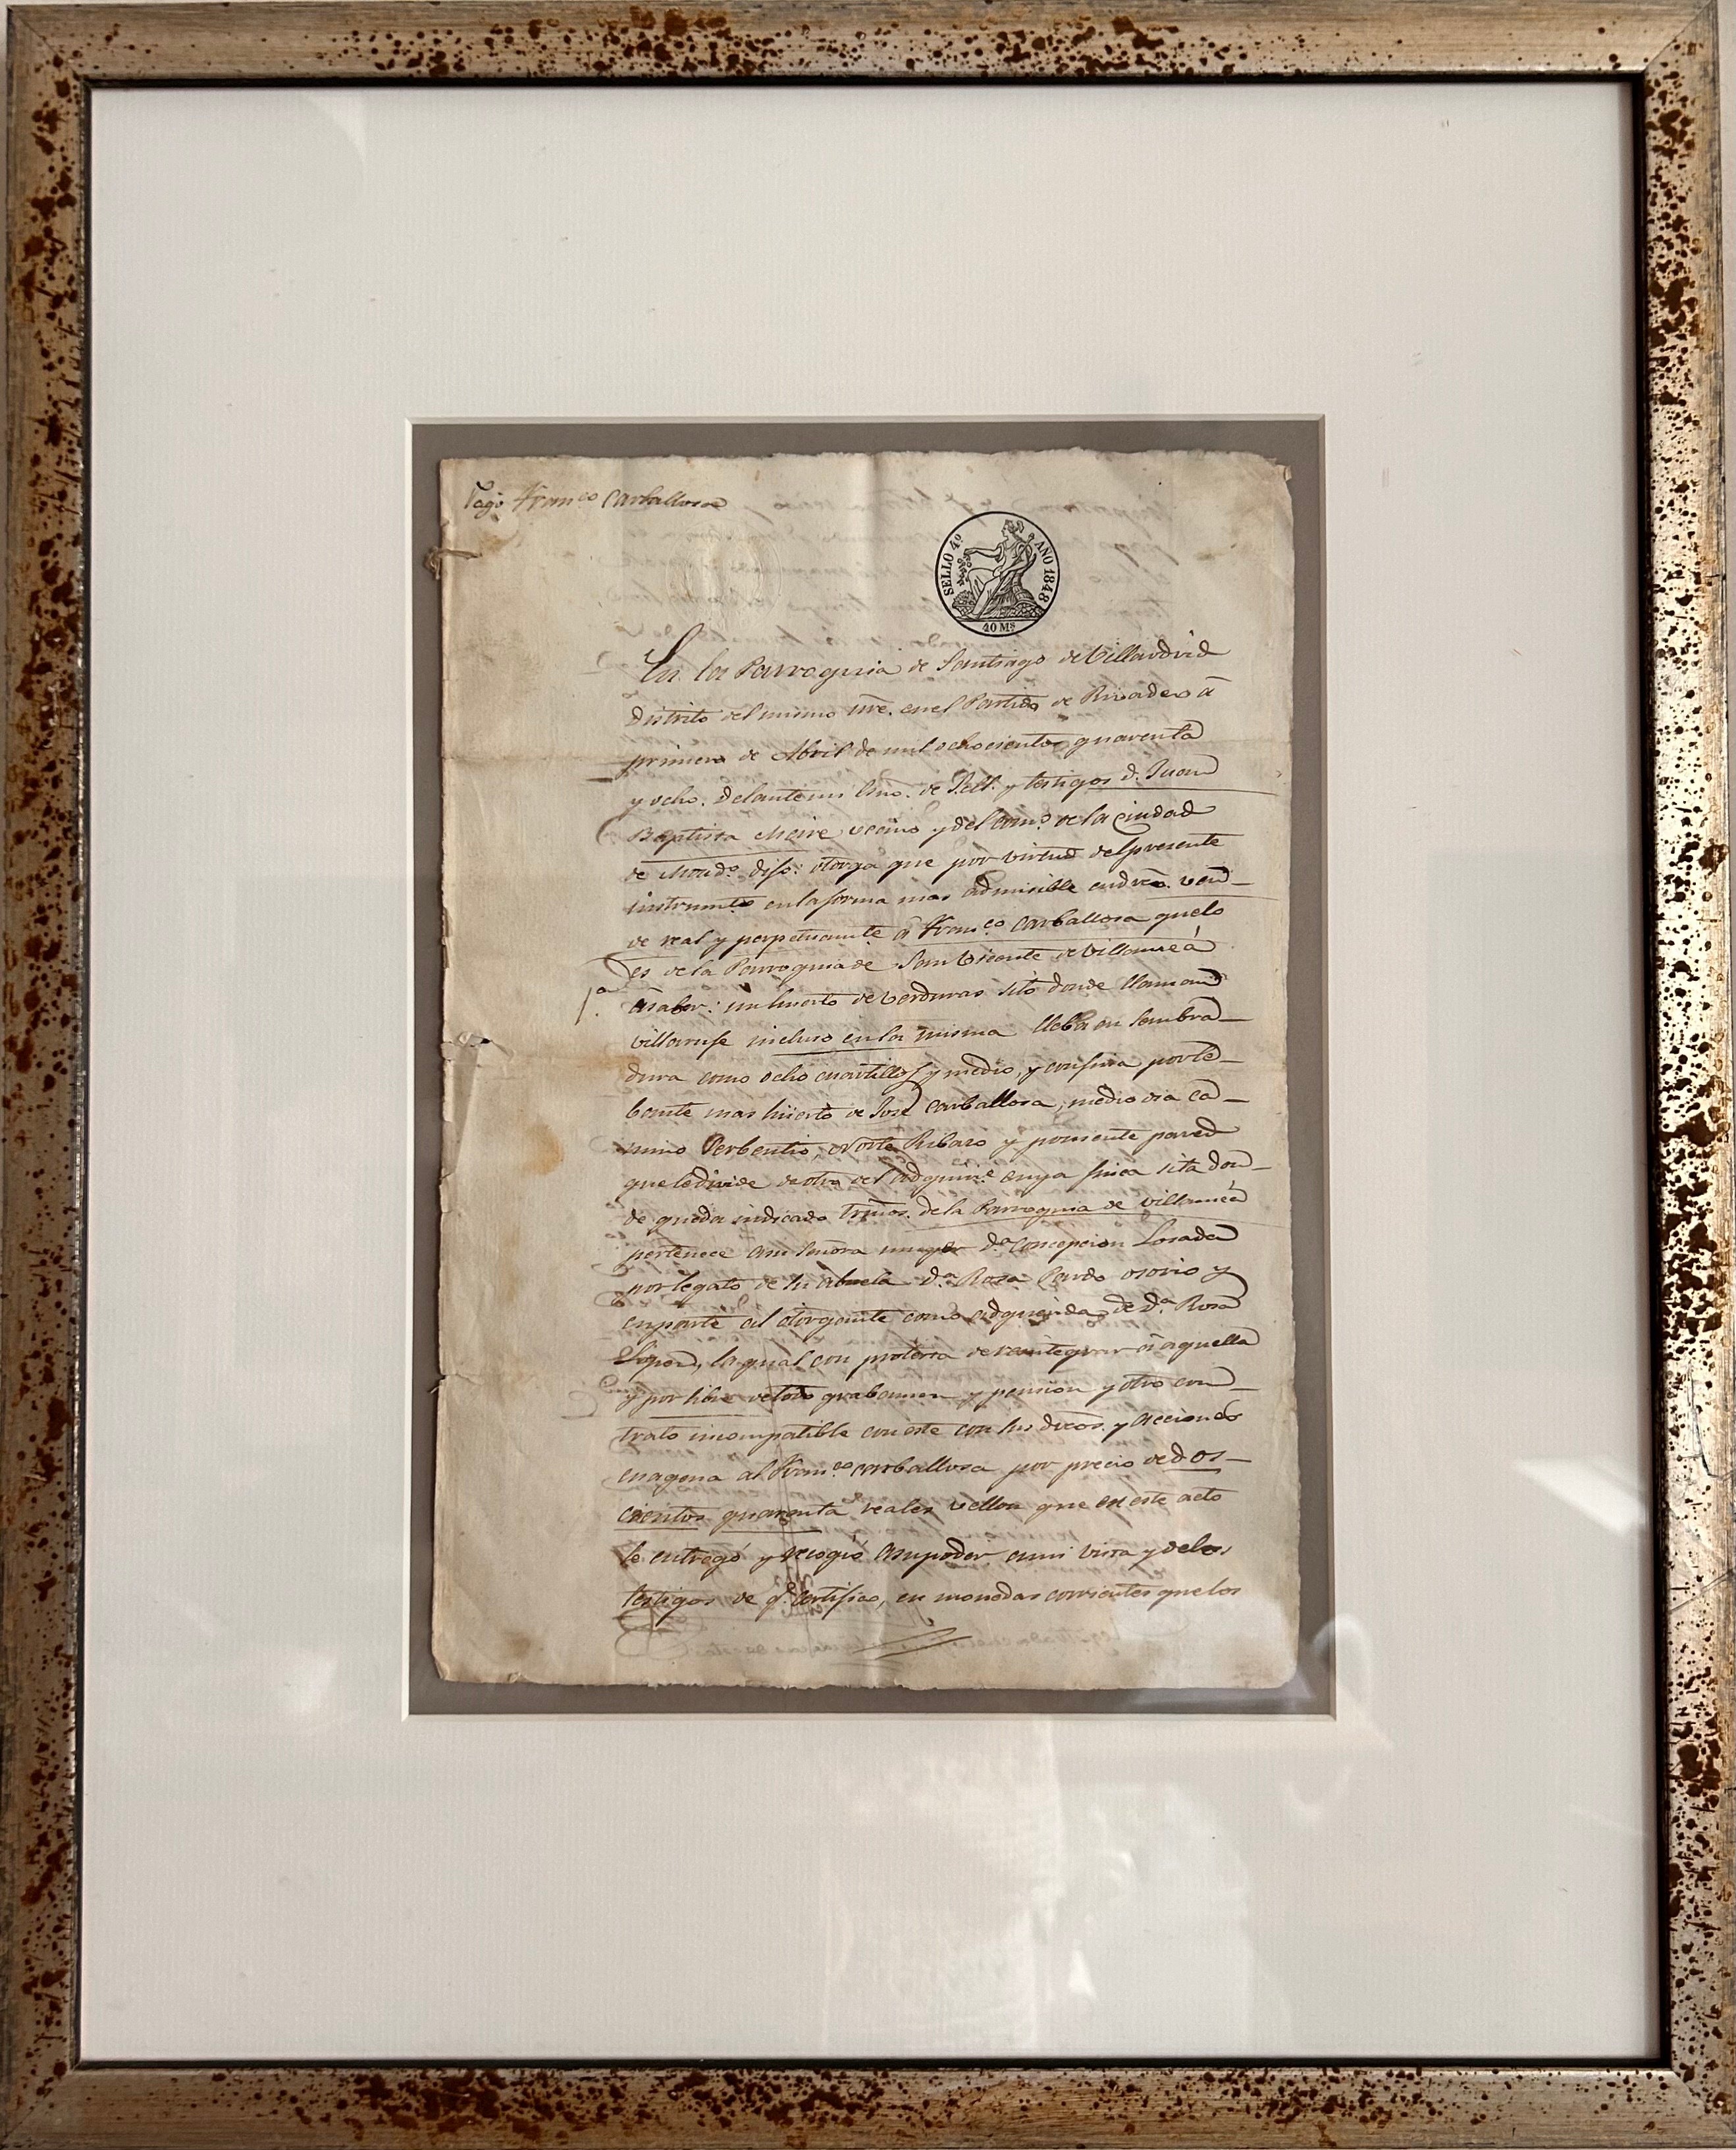 Pagó Fran.co Carballosa
SELLO 4º AÑO 1848
40 Ms
En la Parroquia de Santiago de Villaodrid
distrito del mismo nre. en el Partido de Rivadeo á
primero de Abril de mil ochocientos quarenta
y ocho. delante mi Esno. de S.M. y testigos d. Juan
Baptista Meire vecino y del com.o de la Ciudad
de Mond.o dijo: otorga que por virtud del presente
instrumto en la forma mas admisible en dro. ven–
de real y perpetuamte. á Fran.co Carballosa que lo
es de la Parroquia de San Vicente de Villameá
1.a
á saber: un huerto de verduras sito donde llaman
incluso en la misma lleba en sembra–
dura como ocho cuartillos y medio, y confina por le–
bante mas huerto de José Carballosa, medio dia ca–
mino Norte Ribazo y poniente pared
que le divide de otro del adquir.e cuya finca sita don–
de queda indicado trnos. de la Parroquia de Villameá
pertenece a mi Señora muger d.a Concepcion Losada
por legato de su abuela d.a Rosa Pardo Osorio y
en parte al otorgante como adquirida de d.a Rosa
la qual con protesta de reintegrar á aquella
y por libre de todo grabamen y pension y otro con–
trato incompatible con este con sus dros. y acciones
enagena al Fran.co Carballosa por precio de dos–
cientos quarenta reales vellon que en este acto
le entregó y recogió a su poder a mi vista y de los
testigos de q.e certifico, en monedas corrientes que los